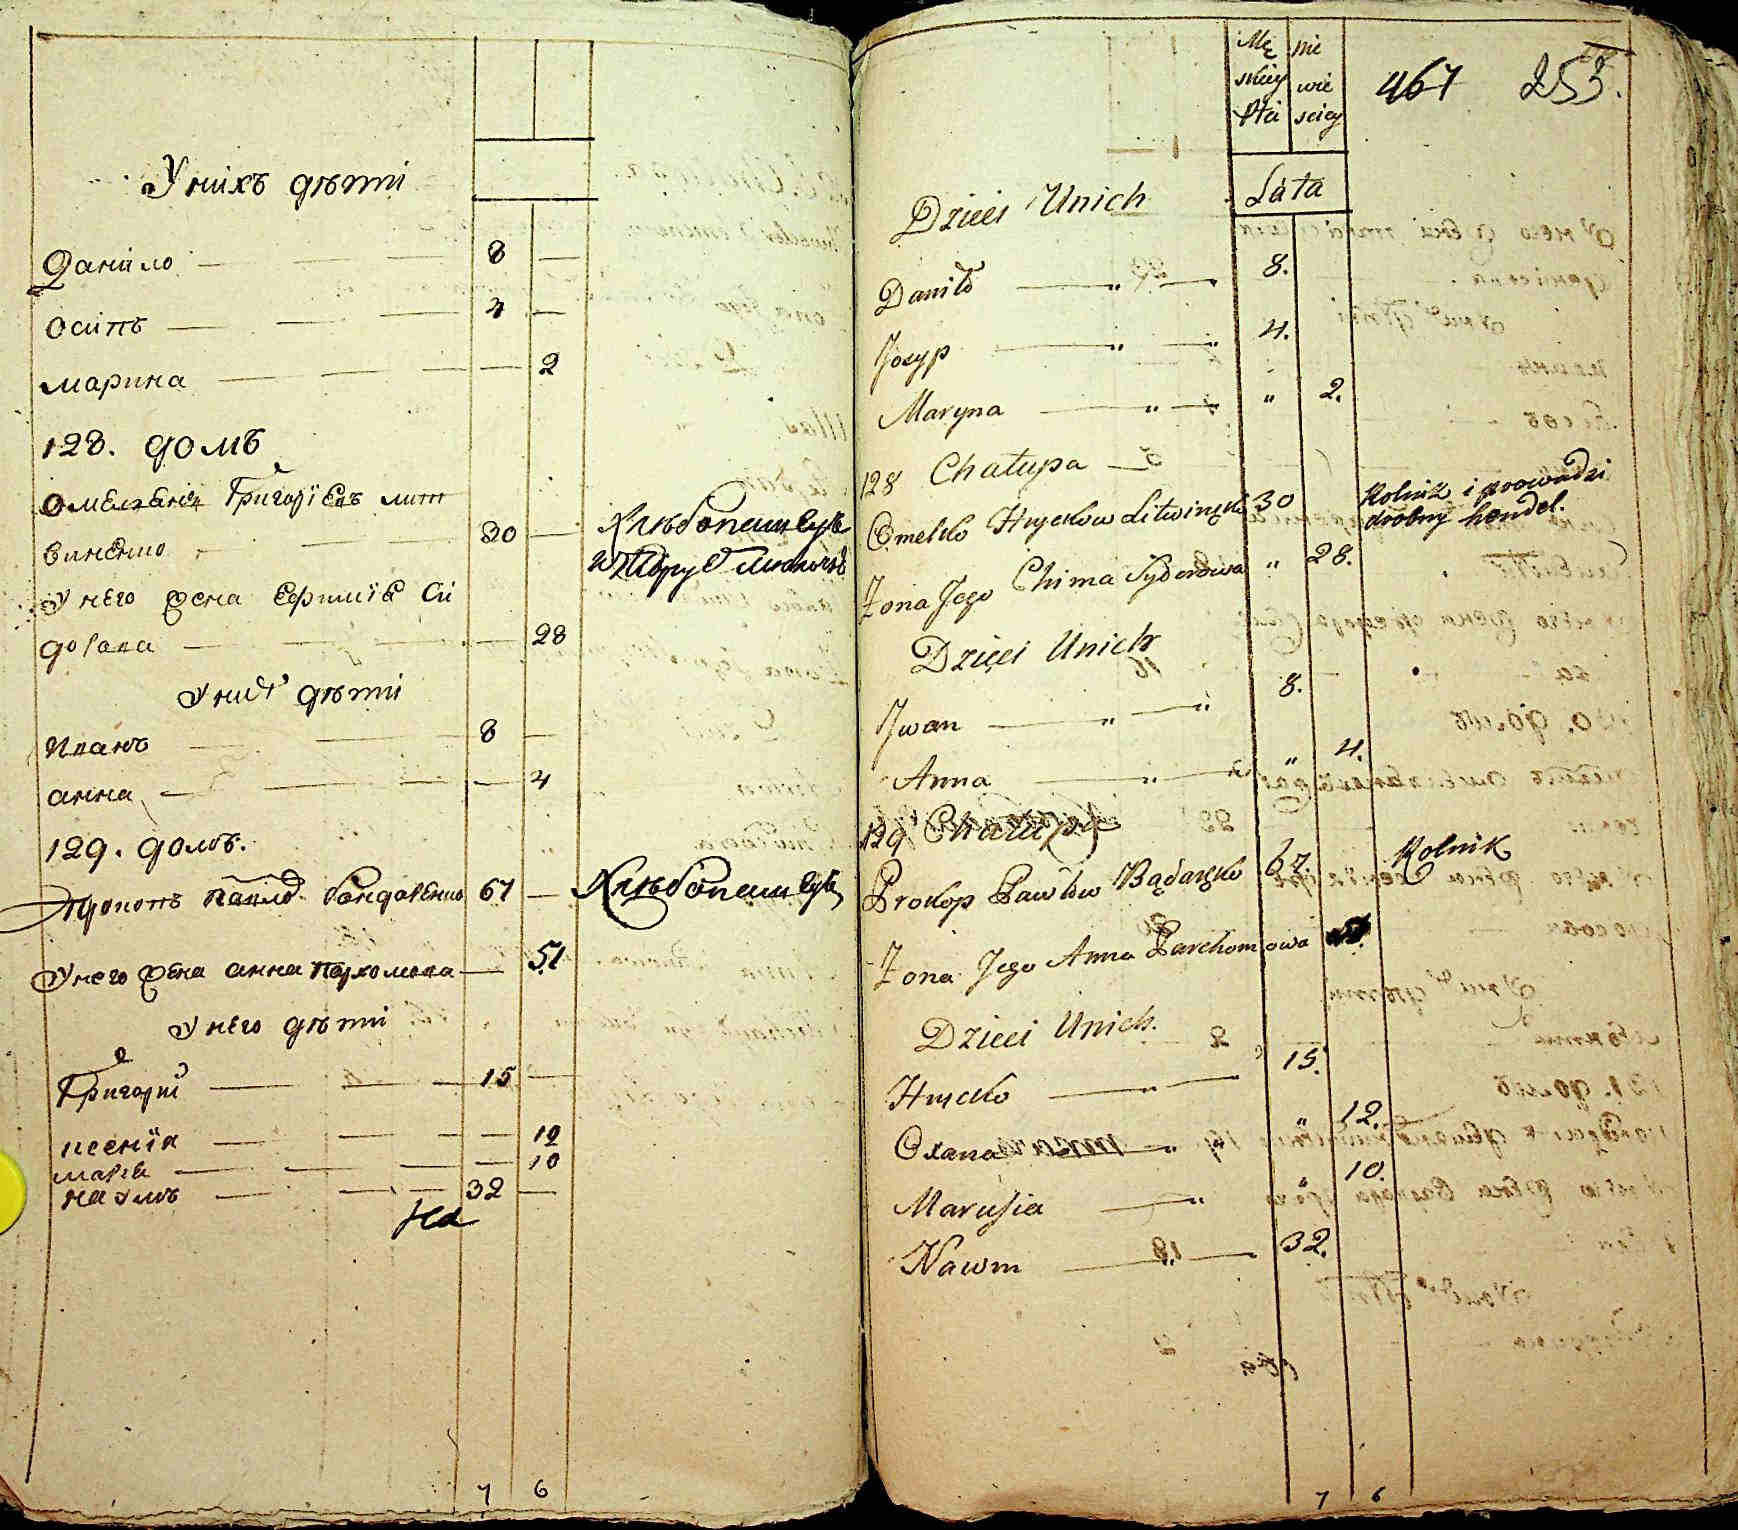 Унихъ дѣти
Данило — — — 8 —
Осипъ — — — 4 —
марина — — — 2
128. домъ
Омелянъ Григорїевъ лит
виненко — — 30 — Хлѣбопашецъ
У него жена Ефимїя Си
дорова — — — 28
У них дѣти
Иванъ — — 8 —
анна — — — 4
129. домъ.
Прокопъ Павлов бондаренко 67 — Хлѣбопашецъ
У него жена анна пархомова — 51
У него дѣти
Григорий — — — 15 —
ксенїя — — — 12
марья — — — 10
наумъ — — — 32 —
На
7 6
Mę
skiey
Płci
nie
wie
sciey
467 253.
Lata
Dzieci Unich
Daniło — " — 8.
Josyp — " — " 4.
Maryna — " — " 2.
128 Chałupa
Omelko Hryckow Litwinęko 30 Rolnik i prowadzi
drobny handel.
Zona Jego Chima Sydorowa " 28.
Dzieci Unich
Jwan — " — " 8.
Anna — " — " 4.
129 Chałupa
Prokop Pawłow Bądaręko 67. Rolnik
Zona Jego Anna Parchomowa
Dzieci Unich.
Hrycko — " — 15.
Oxana — " " 12.
Marusia — " " 10.
Nawm — " — 32.
7 6